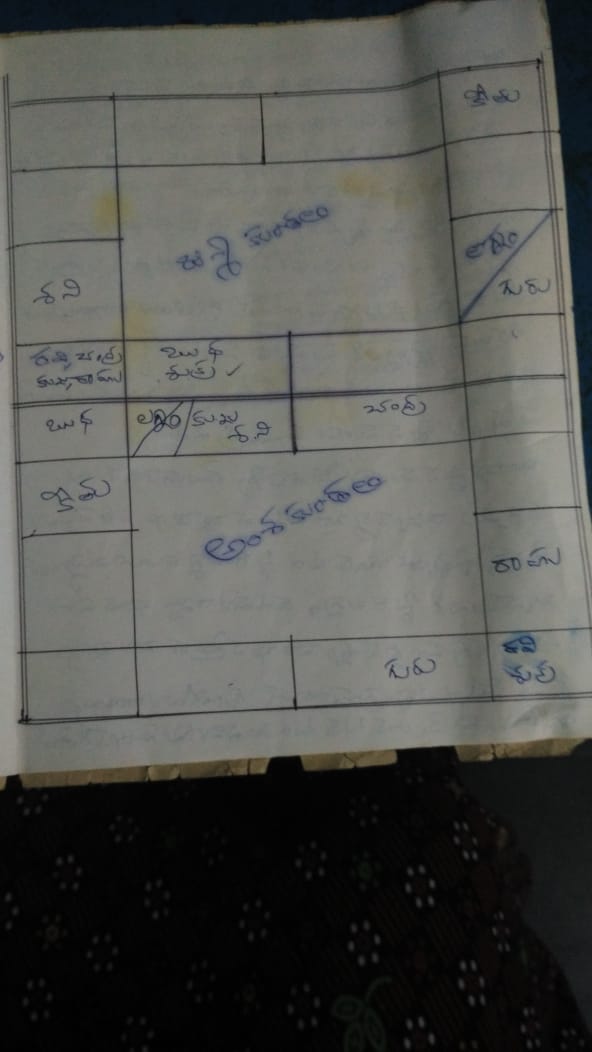 కేతు
జన్మ కుండలి
లగ్నం
గురు
శని
రవి, చంద్ర
కుజ, రాహు
బుధ
శుక్ర
బుధ
లగ్నం
కుజ
శని
చంద్ర
కేతు
అంశ కుండలి
రాహు
గురు
రవి
శుక్ర